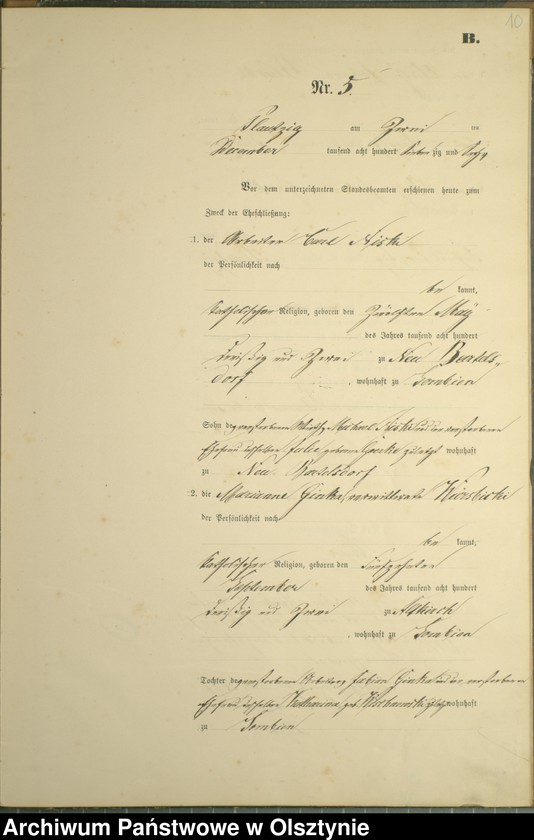 10
B.
Nr. 5.
Plautzig am Zwei ten
December tausend acht hundert sieben zig und sechs
Vor dem unterzeichneten Standesbeamten erschienen heute zum
Zweck der Eheschließung:
1. der Arbeiter Carl
der Persönlichkeit nach
be kannt,
katholischer Religion, geboren den Zwölften May
des Jahres tausend acht hundert
dreißig und Zwei zu Neu Bartels-
dorf, wohnhaft zu
Sohn des verstorbenen Michael und der verstorbenen
Ehefrau desselben Julie, geborene zuletzt wohnhaft
zu Neu Bartelsdorf
2. die Marianne verwittwete
der Persönlichkeit nach
be kannt,
katholischer Religion, geboren den Fünfzehnten
September des Jahres tausend acht hundert
dreißig und Zwei zu
, wohnhaft zu
Tochter des verstorbenen Fabian und der verstorbenen
Ehefrau desselben Katharina, geb. wohnhaft
zu
Archiwum Państwowe w Olsztynie